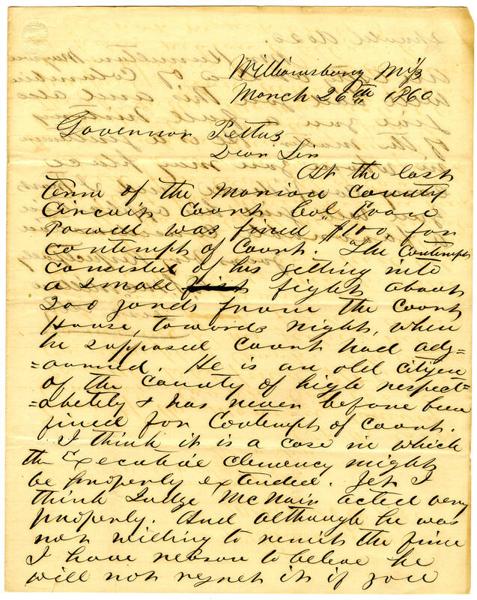 Williamsburg Miss
March 26th 1860
Governor Pettus
Dear Sir
At the last
term of the Marion County
Circuit Court Col. Evan
Powell was fined $100 for
contempt of Court. The Contempt
Consisted of his getting into
a small fight about
200 yards from the Court
House, towards night, when
he supposed Court had adj-
=ourned. He is an old citizen
of the County of high respect-
=ability & has never before been
fined for Contempt of Court.
I think it is a case in which
the Executive clemency might
be properly extended. Yet I
think Judge McNair acted very
properly. And although he was
not willing to remit the fine
I have reason to believe he
will not regret it if you